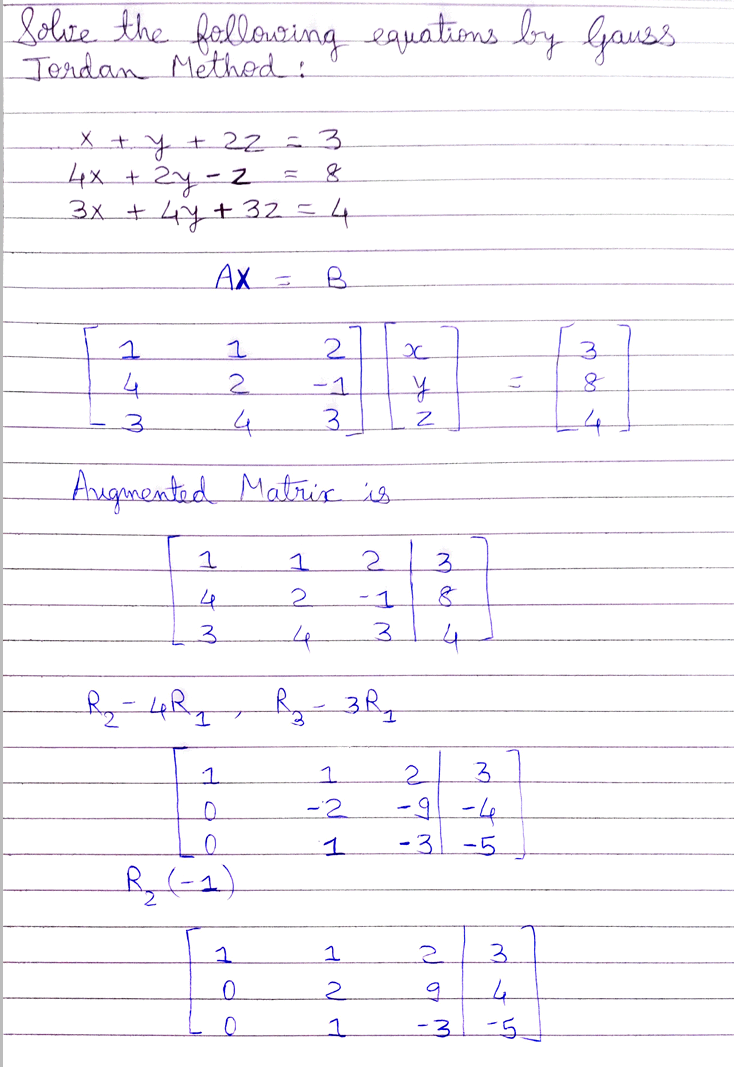 Solve the following equations by Gauss
Jordan Method :
x + y + 2z = 3
4x + 2y - z = 8
3x + 4y + 3z = 4
AX = B
[ 1 1 2 ] [ x ] = [ 3 ]
[ 4 2 -1 ] [ y ] = [ 8 ]
[ 3 4 3 ] [ z ] = [ 4 ]
Augmented Matrix is
[ 1 1 2 | 3 ]
[ 4 2 -1 | 8 ]
[ 3 4 3 | 4 ]
R₂ - 4R₁ , R₃ - 3R₁
[ 1 1 2 | 3 ]
[ 0 -2 -9 | -4 ]
[ 0 1 -3 | -5 ]
R₂ (-1)
[ 1 1 2 | 3 ]
[ 0 2 9 | 4 ]
[ 0 1 -3 | -5 ]